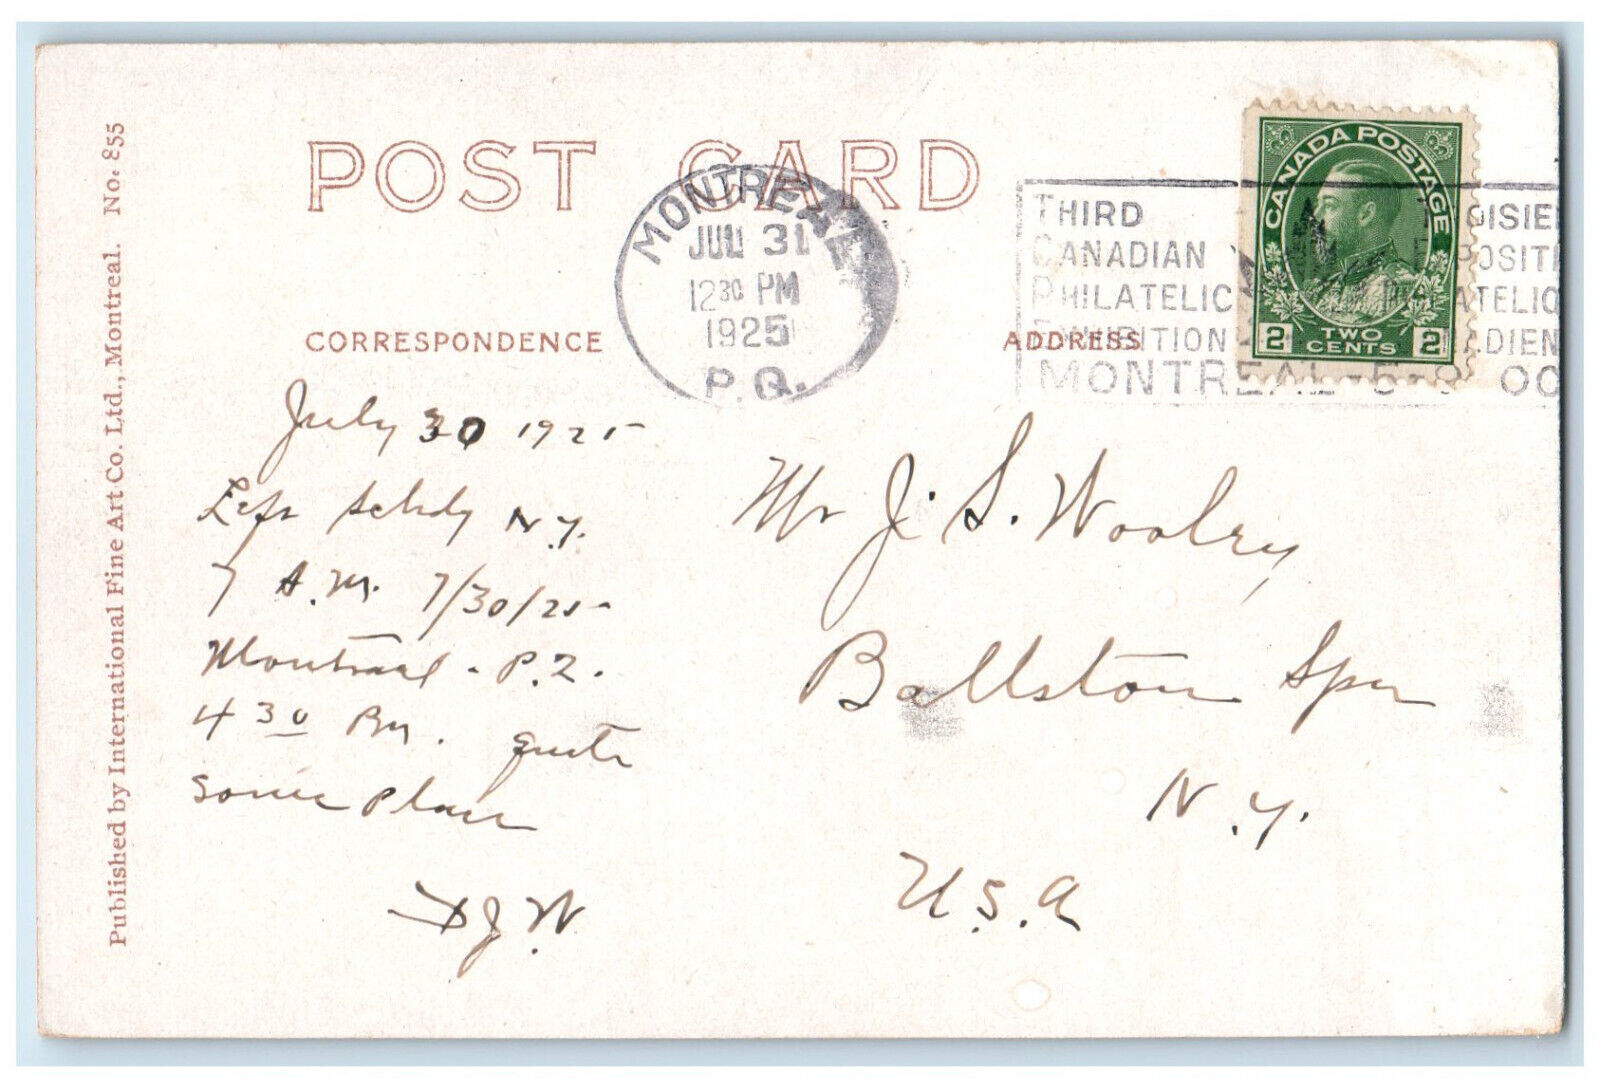 POST CARD
Published by International Fine Art Co. Ltd., Montreal. No. 855
MONTREAL
JUL 31
12 30 PM
1925
P.Q.
THIRD
CANADIAN
PHILATELIC
EXHIBITION
MONTREAL 5-9 OC
OISIE
POSITI
ATELIQ
ADIEN
CANADA POSTAGE
2 TWO CENTS 2
CORRESPONDENCE
ADDRESS
July 30 1925
Left Schdy N.Y.
7 A.M. 7/30/25
Montreal - P.Q.
4 30 PM. quite
some place
J.W.
Mr J. S. Woolry
Ballston Spa
N.Y.
U.S.A